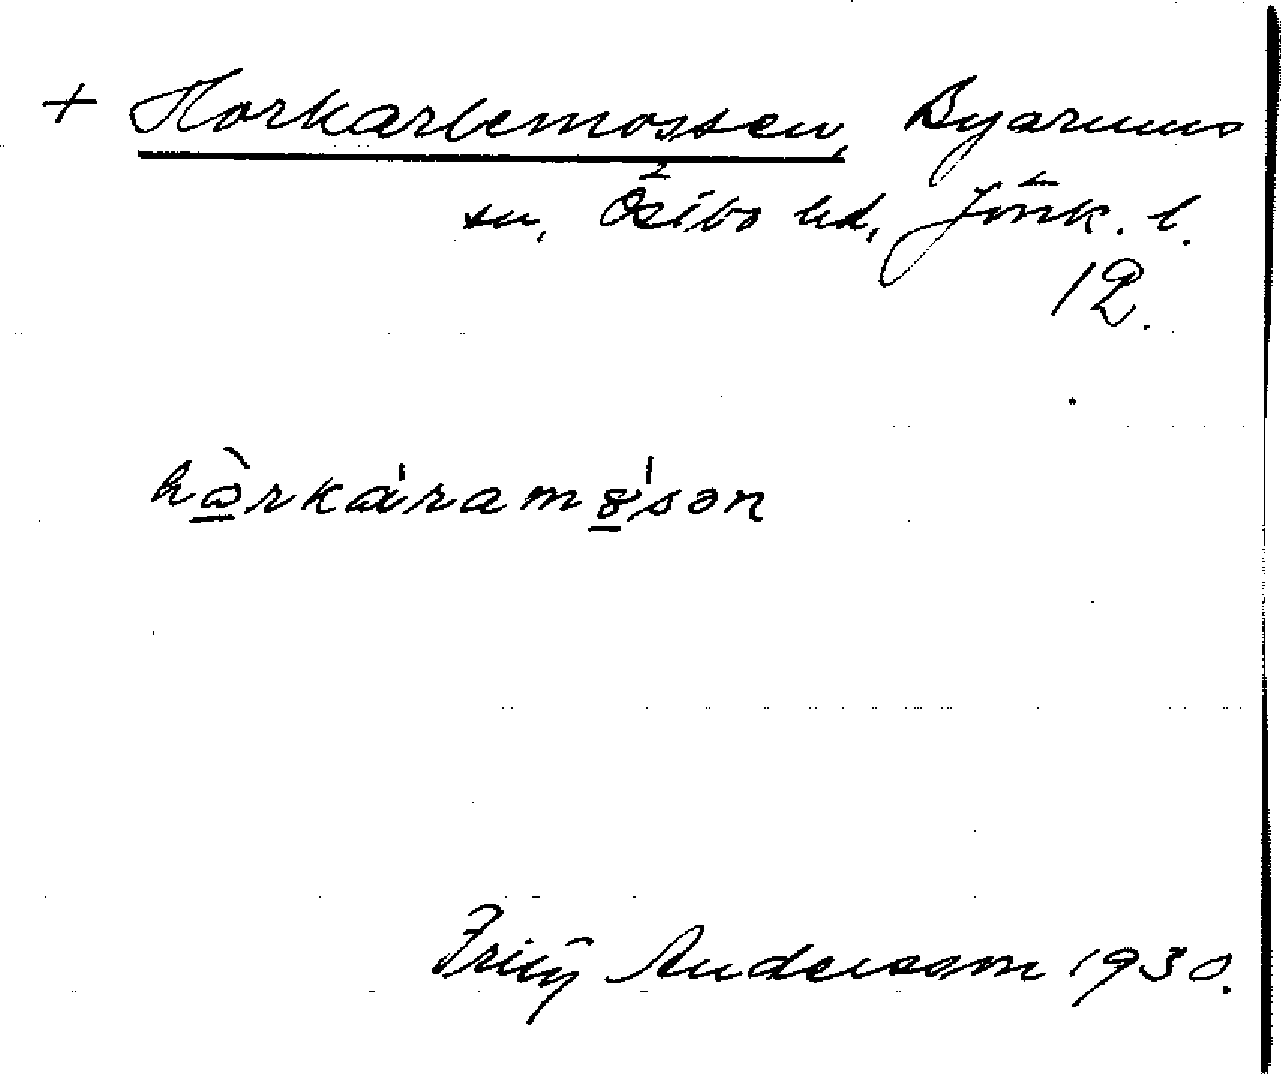 + Horkarlemossen, Byarums
sn, Östbo hd, Jönk. l.
12.
hòrkáramó̱sən
Fritz Andersson 1930.